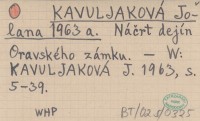 KAVULJAKOVÁ Jo-
lana 1963 a. Náčrt dejín
Oravského zámku. - W:
KAVULJAKOVÁ J. 1963, s.
5-39.
WHP